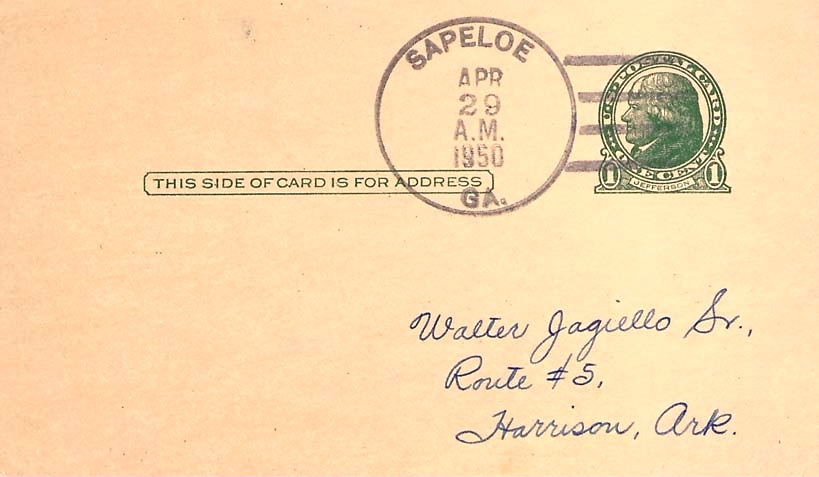 SAPELOE
APR
29
A.M.
1950
GA.
U.S. POSTAL CARD
ONE CENT
1 JEFFERSON 1
THIS SIDE OF CARD IS FOR ADDRESS
Walter Jagiello Sr.,
Route #5,
Harrison, Ark.